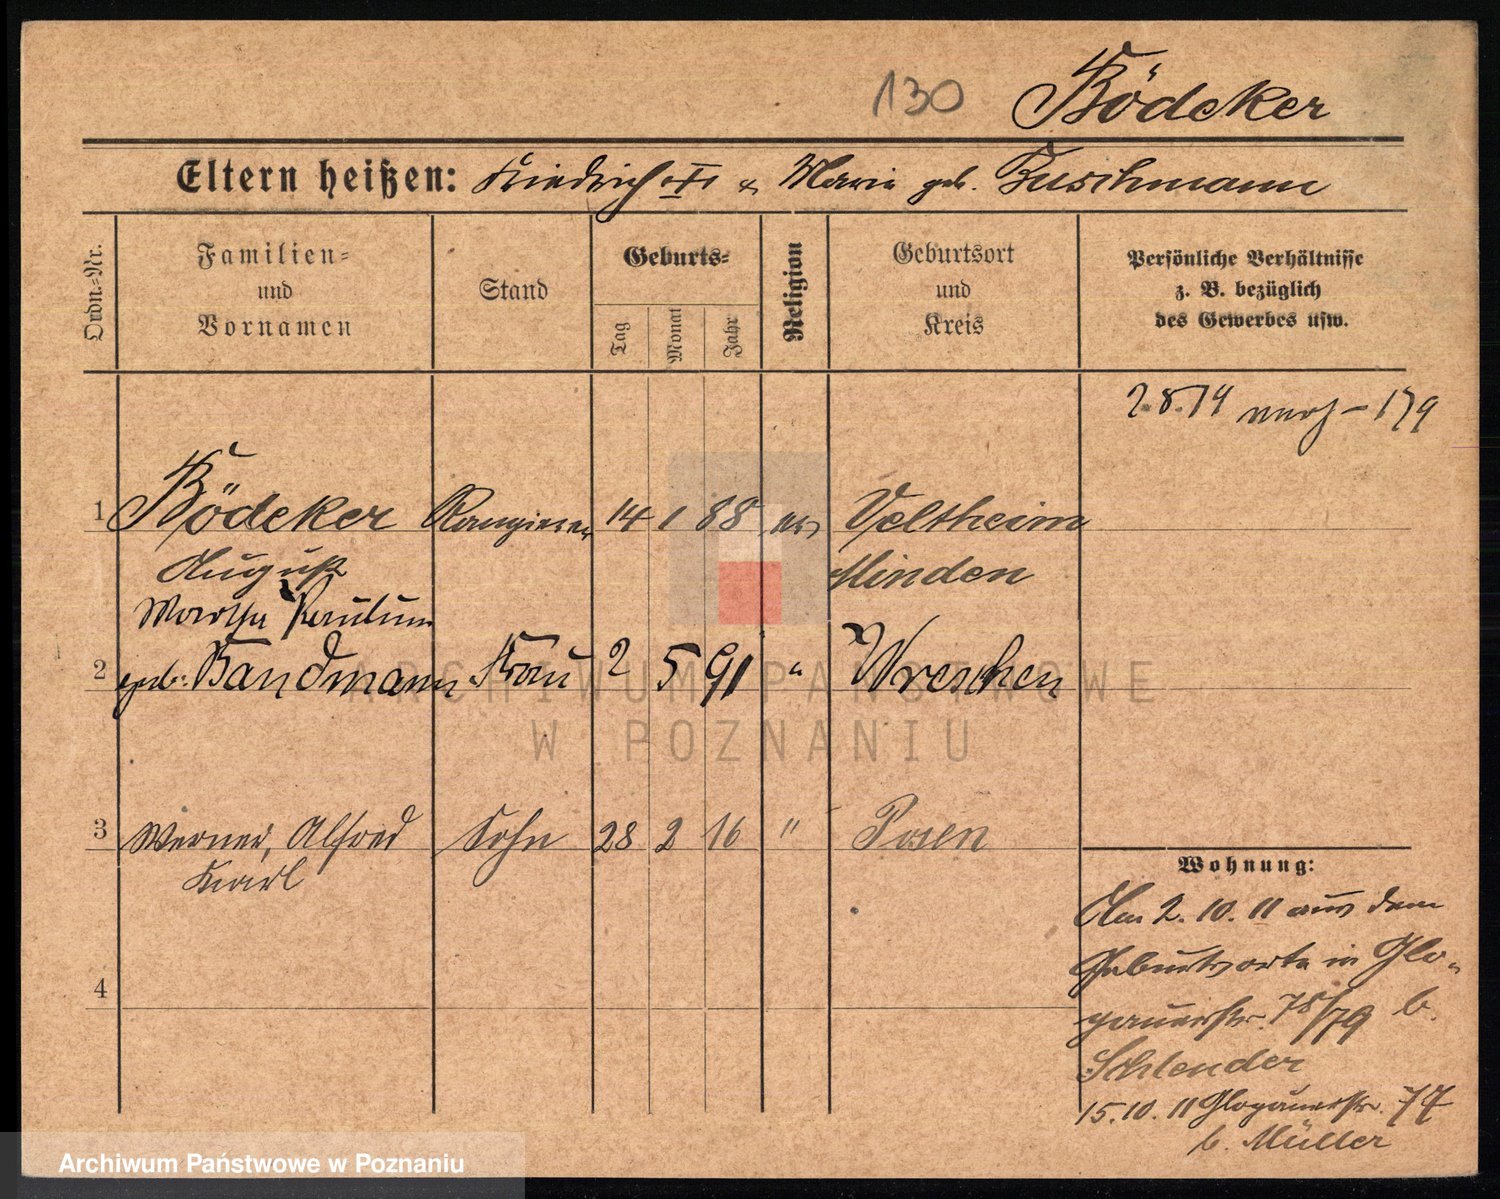 130 Bödeker
Eltern heißen: Friedrich I & Marie geb. Buschmann
Ordn.-Nr.
Familien- und Vornamen
Stand
Geburts-
Tag
Monat
Jahr
Religion
Geburtsort und Kreis
Persönliche Verhältnisse
z. B. bezüglich
des Gewerbes usw.
2.8.14 verh - 179
1 Bödeker Rangierer 14 1 88 ev Veltheim
August Minden
Martha Pauline
2 geb. Bandmann Frau 2 5 91 " Wreschen
3 Werner, Alfred Sohn 28 2 16 " Posen
Karl
4
Wohnung:
Am 2. 10. 11 aus dem
Geburtsorte in Glo-
gauerstr. 78/79 b.
Schlender
15. 10. 11 Glogauerstr. 77
b. Müller
ARCHIWUM PAŃSTWOWE
W POZNANIU
Archiwum Państwowe w Poznaniu